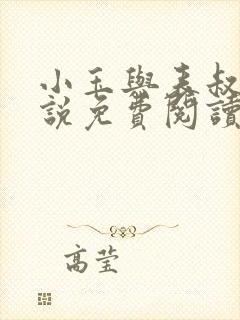 小玉與表叔
說免費閱讀
高莹